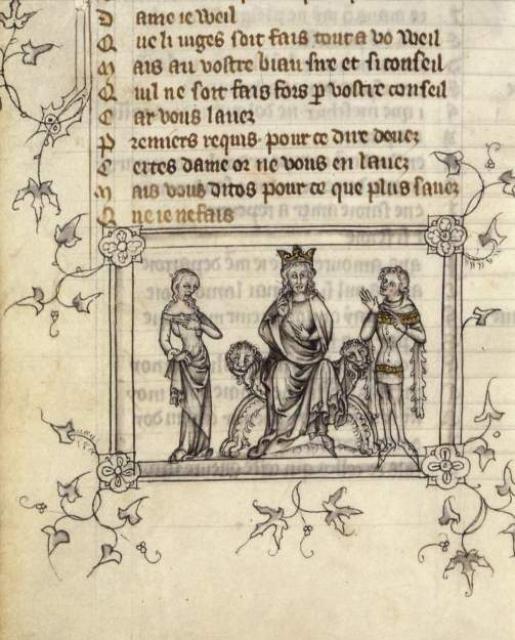 D ame ie weil
Q ue li iuges soit fais tout a vo weil
M ais au vostre biau sire et si conseil
Q uil ne soit fais fors p vostre conseil
C ar vous lauez
P remiers requis pour ce dire deuez
C ertes dame or ne vous en lauez
M ais vous ditos pour ce que plus sauez
Q ue ie ne fais